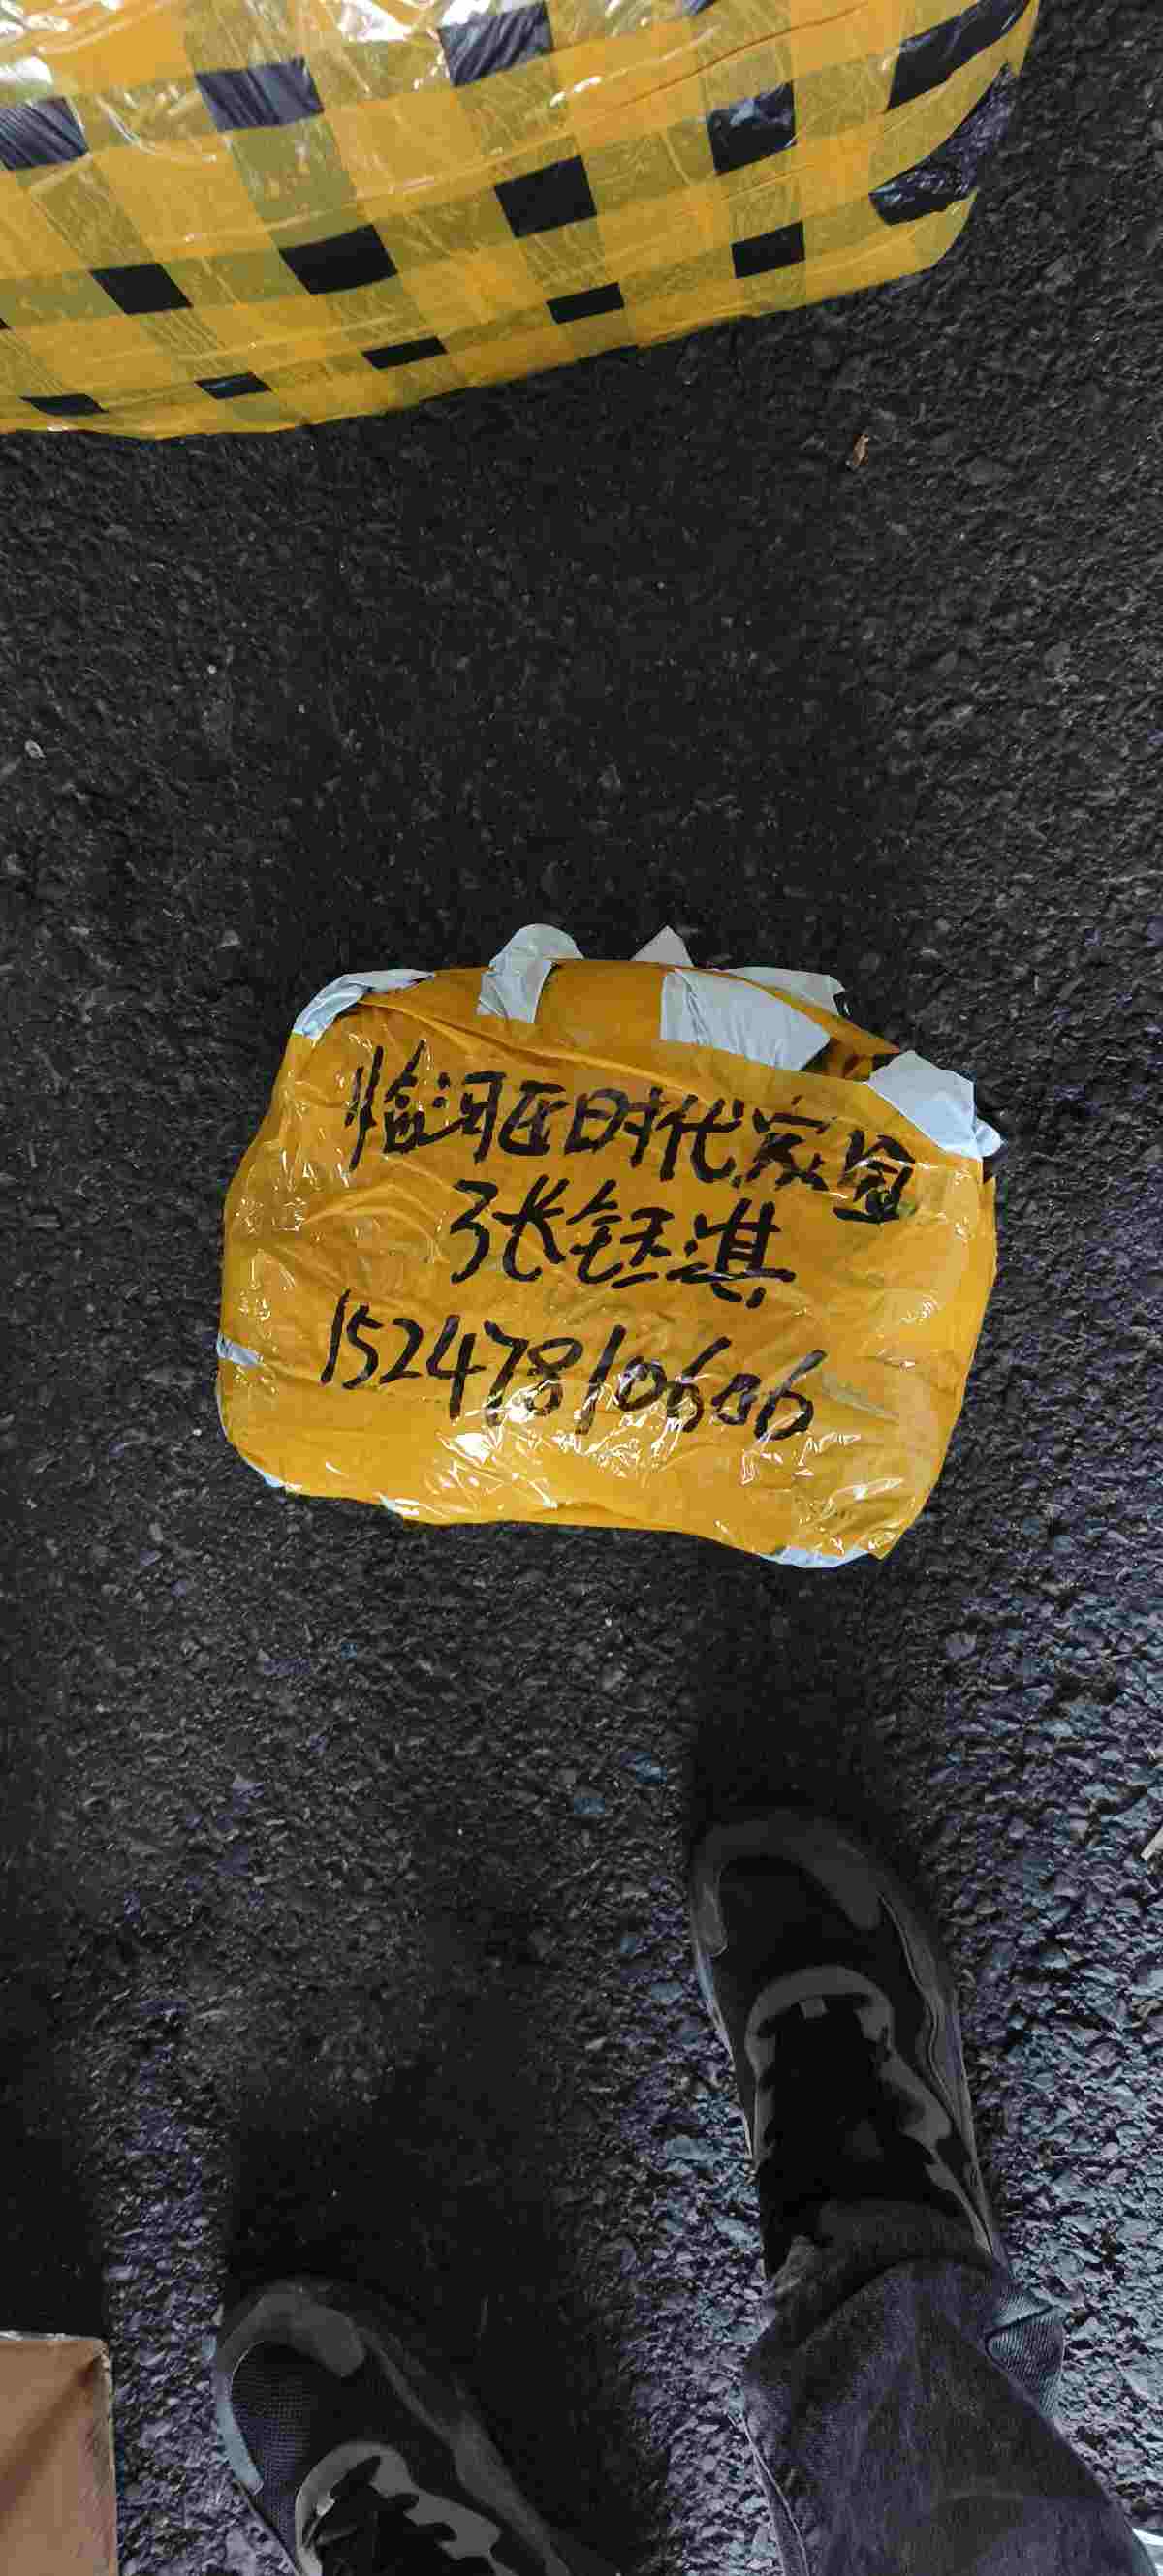 临河区时代家盈
张钰淇
15247810606